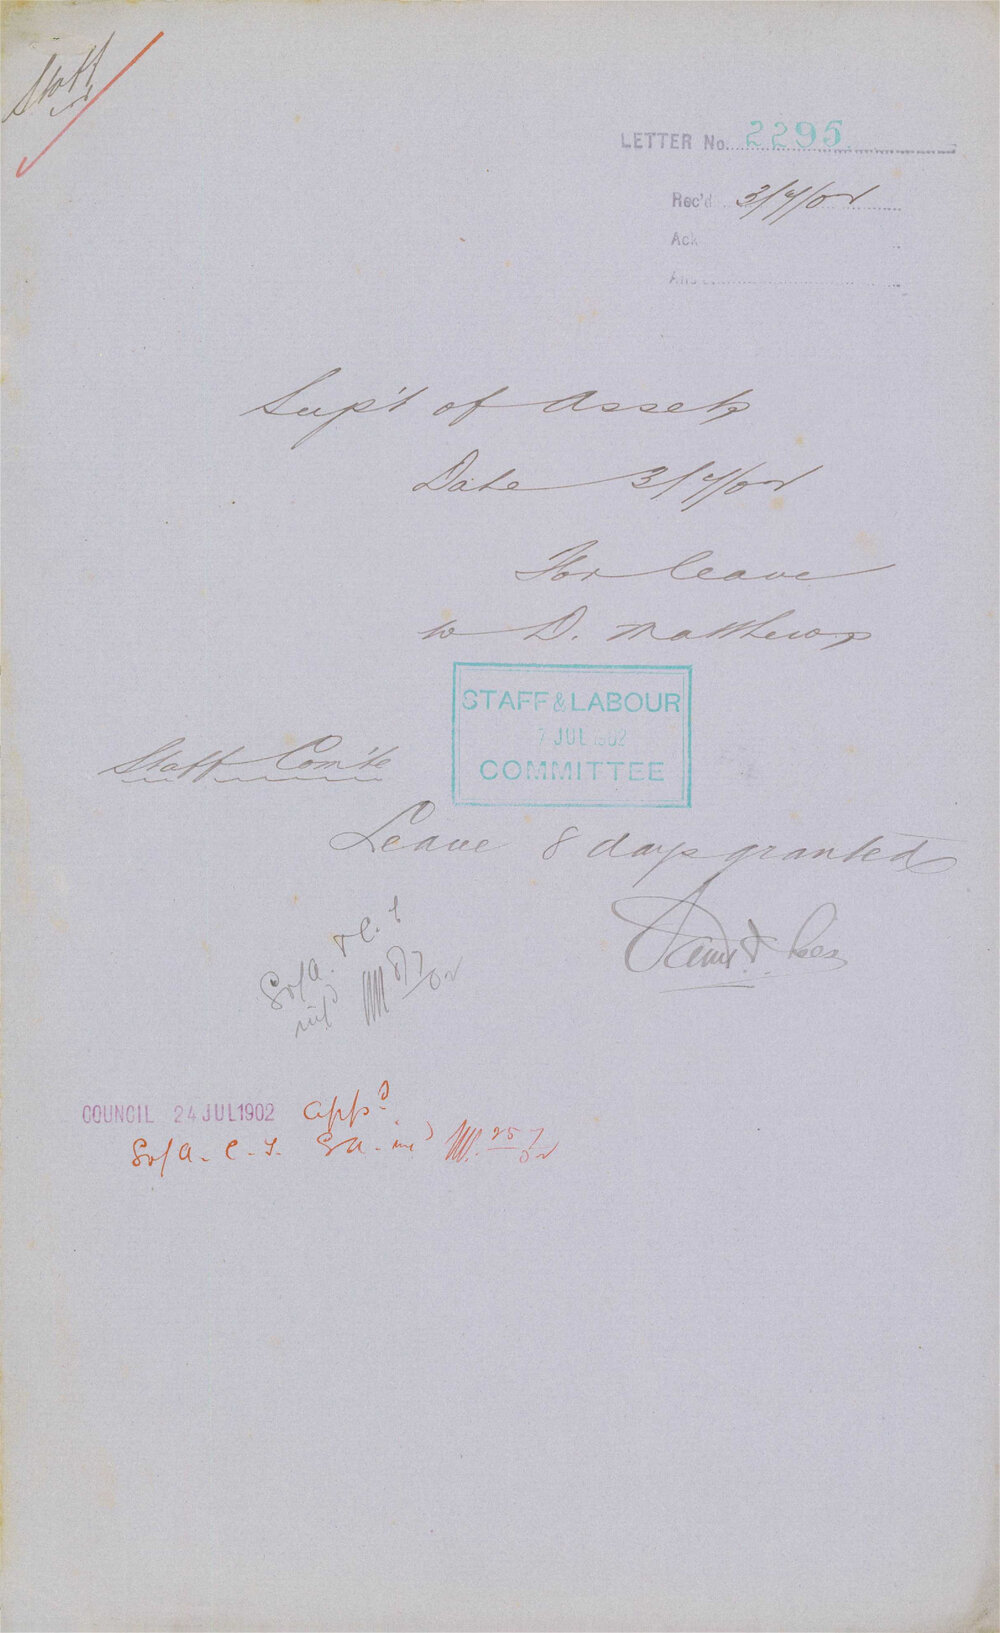 Staff
LETTER No. 2295
Rec'd 3/7/02
Ack
Ans
Sup't of Assets
Date 3/7/02
For leave
to D. Matthews
STAFF & LABOUR
7 JUL 1902
COMMITTEE
Staff Com'te
Leave 8 days granted
S of A. & C. T.
8/7/02
COUNCIL 24 JUL 1902 App'd
S of A. C. T. 25/7/02